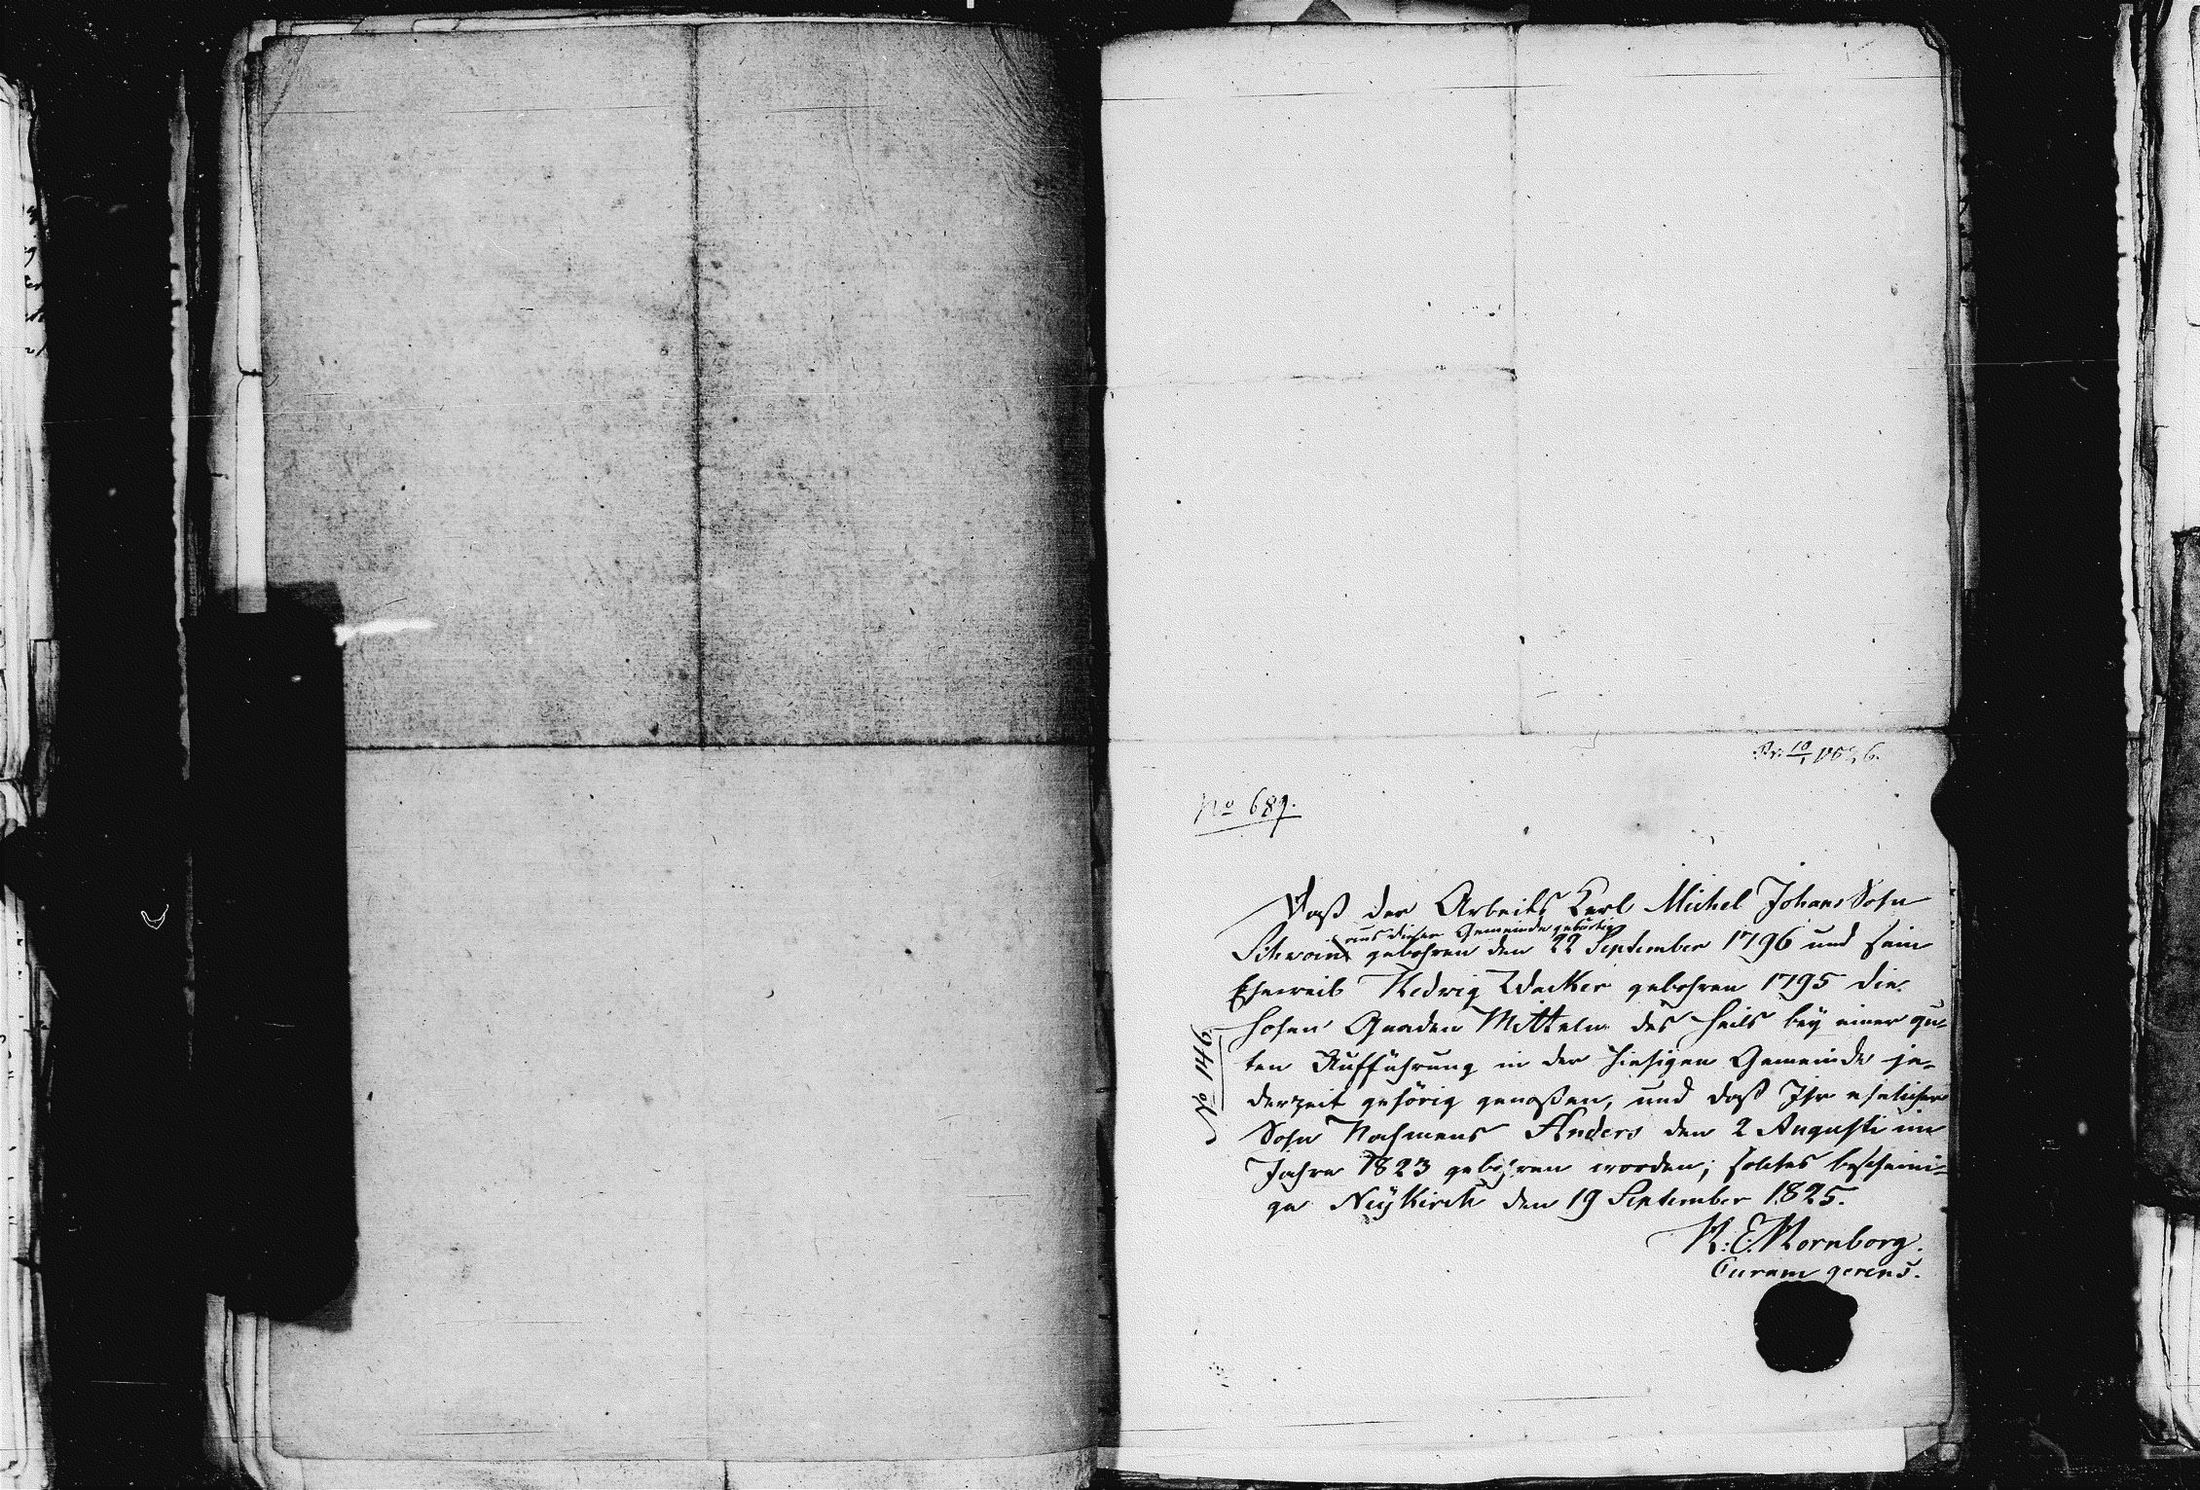 Pr. 10/1 1826.
No 689.
Daß der Arbeits Kerl Michel Johans Sohn
aus dieser Gemeinde gebürtig
gebohren den 22 September 1796 und sein
Eheweib Hedwig Wacker gebohren 1795 die
hohen Gnaden Mitteln des Heils bey einer gu-
ten Aufführung in der hiesigen Gemeinde je-
derzeit gehörig genoßen, und daß Ihr ehelicher
Sohn Nahmens Anders den 2 Augusti im
Jahre 1823 gebohren worden; solches bescheini-
ge NeyKirch den 19 September 1825.
K: E: Kornborg.
Curam gerens.
No 146